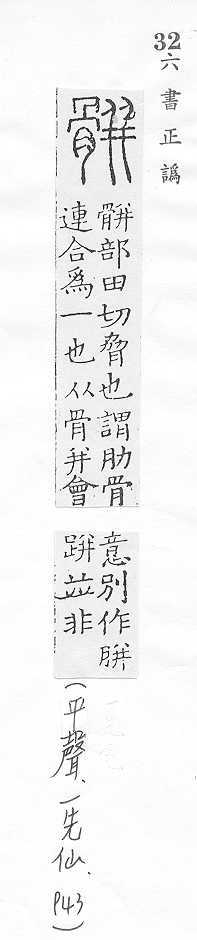 32
六書正譌
骿
骿部田切脅也謂肋骨
連合爲一也从骨并會
意別作胼
跰並非
(平聲、一先仙、P43)